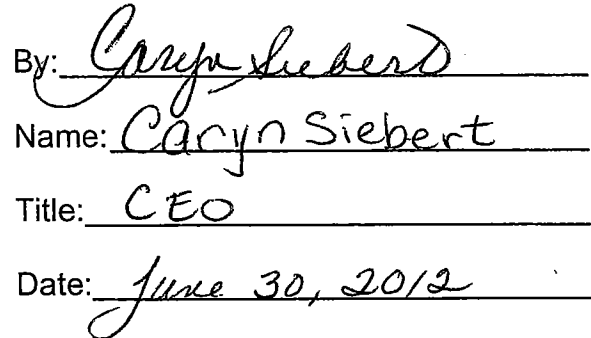 By: Caryn Siebert
Name: Caryn Siebert
Title: CEO
Date: June 30, 2012